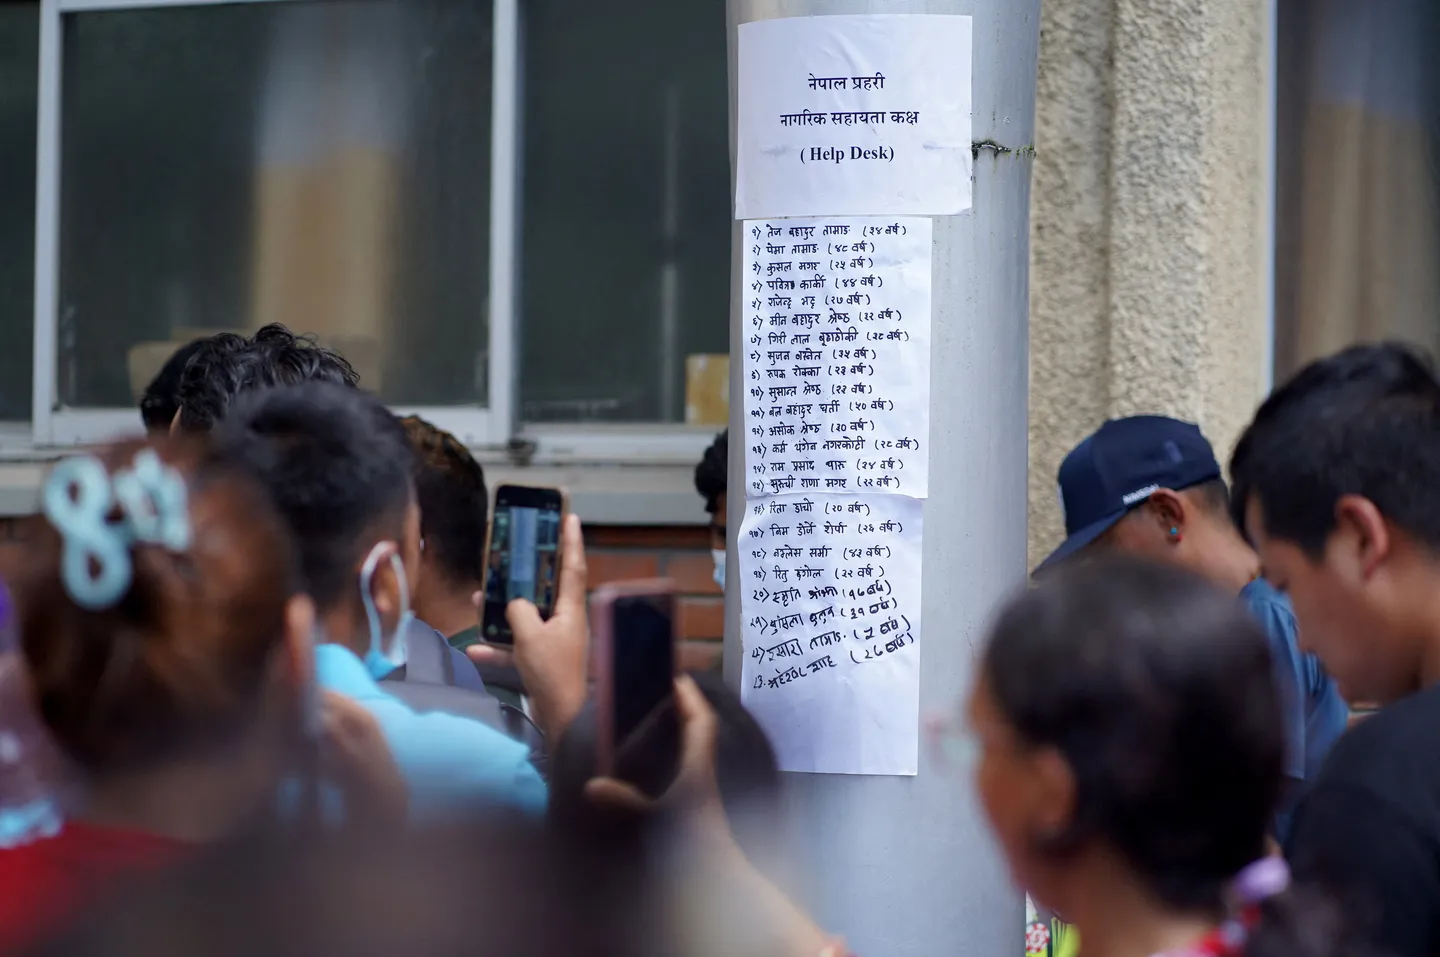 नेपाल प्रहरी
नागरिक सहायता कक्ष
( Help Desk)
१) तेज बहादुर तामाङ (३४ वर्ष)
२) पेमा तामाङ (४८ वर्ष)
३) कुसल मगर (२५ वर्ष)
४) पवित्रा कार्की (४४ वर्ष)
५) राजेन्द्र भट्ट (२७ वर्ष)
६) मीन बहादुर श्रेष्ठ (३२ वर्ष)
७) गिरी लाल बूढाठोकी (३८ वर्ष)
८) सुजन बस्नेत (३५ वर्ष)
९) रुपक रोक्का (२३ वर्ष)
१०) सुसान्त श्रेष्ठ (२३ वर्ष)
११) बल बहादुर घर्ती (५० वर्ष)
१२) असोक श्रेष्ठ (३० वर्ष)
१३) कर्म नगरकोटी (२८ वर्ष)
१४) राम प्रसाद थारु (२४ वर्ष)
१५) सुरुची राणा मगर (२२ वर्ष)
१६) रिता (२० वर्ष)
१७) निम दोर्जे शेर्पा (२६ वर्ष)
१८) शर्मा (४३ वर्ष)
१९) रितु डंगोल (२२ वर्ष)
२०) स्मृति (१७ वर्ष)
२१) (३१ वर्ष)
तामाङ (५ वर्ष)
२३. शाह (२८ वर्ष)
NAMSDAI